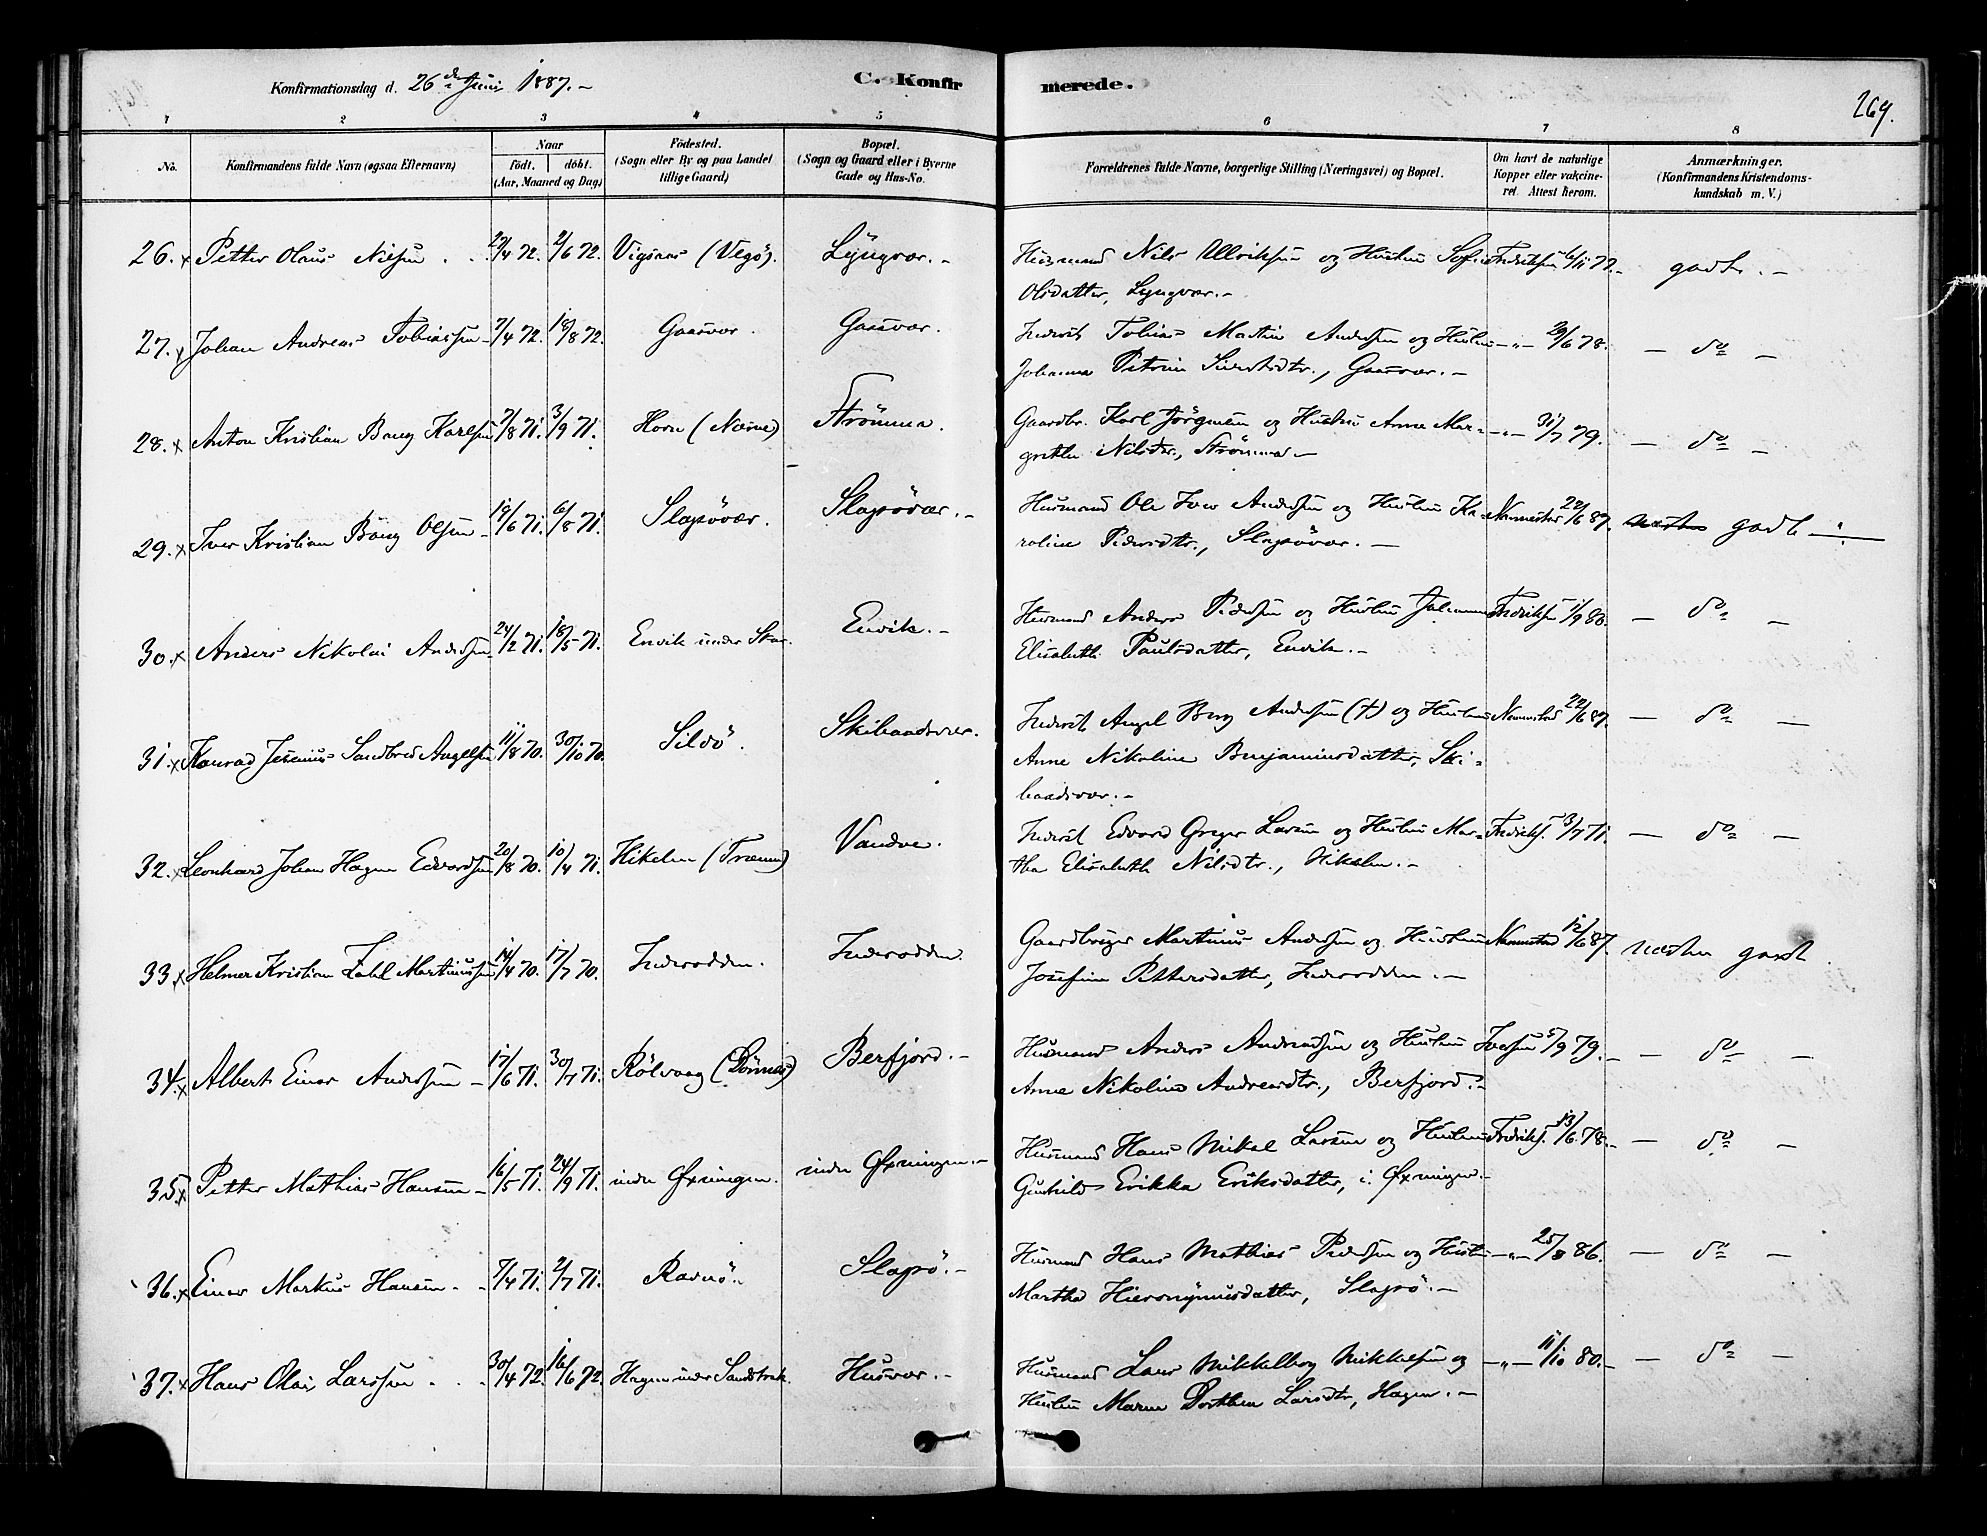 Konfirmationsdag d. 26de Juni 1887.-
C. Konfirmerede.
269.
1 2 3 4 5 6 7 8
No.
Konfirmandens fulde Navn (ogsaa Efternavn)
Naar
født. døbt.
(Aar, Maaned og Dag)
Fødested.
(Sogn eller By og paa Landet
tillige Gaard)
Bopæl.
(Sogn og Gaard eller i Byerne
Gade og Hus-No.
Forældrenes fulde Navne, borgerlige Stilling (Næringsvei) og Bopæl.
Om havt de naturlige
Kopper eller vakcine-
ret. Attest herom.
Anmærkninger.
(Konfirmandens Kristendoms-
kundskab m. V.)
26. x Petter Olaus Nilsen 4 72. 2/6 72. Vigsaas (Vegö). Lyngvær.- Husmand Nils Ulriksen og Hustru Sofie Fredriksen godt.-
Olsdatter, Lyngvær.-
27. x Johan Andreas Tobiassen 7/4 72. 18/8 72. Gaasvær. Gaasvær. Inderst Tobias Martin Andersen og Hustru -"- 29/6 78. - do -
Johanna Petrine Sivertsdtr., Gaasvær.-
28. x Anton Kristian Bang Karlsen 7/8 71. 3/9 71. Horn (Næsne) Strömma. Gaardbr. Karl Jörgensen og Hustru Anne Mar- -"- 31/7 79. - do -
grethe Nilsdtr., Strömma.-
29. x Iver Kristian Bang Olsen 19/6 71. 6/8 71. Slapövær. Slapövær.- Husmand Ole Iver Andersen og Hustru Ka- Nummestad 22/6 87. godt
roline Pedersdtr., Slapövær.-
30. x Anders Nikolai Andersen 24/2 71. 18/5 71. Envik under Skar. Envik.- Husmand Anders Pedersen og Hustru Johanna Fredriksen 1/9 80. - do -
Elisabeth Paulsdatter, Envik.-
31. x Konrad Jesenius Sandbred Angelsen 11/8 70. 30/10 70. Sildö. Skibaadsvær. Inderst Angel Berg Andersen (†) og Hustru Nummestad 22/6 87. - do -
Anne Nikoline Benjaminsdatter, Ski-
baadsvær.-
32. x Leonhard Johan Hagen Edvardsen 20/8 70. 10/4 71. Hikelen (Trænen) Vandve. Inderst Edvard Greger Larsen og Hustru Mar- Fredriks. 3/7 71. - do -
tha Elisabeth Nilsdtr., Hikelen.-
33. x Helmer Kristian Zahl Martinussen 14/4 70. 17/7 70. Inderodden. Inderodden. Gaardbruger Martinus Andersen og Hustru Nummestad 12/6 87. næsten godt.
Josefine Pettersdatter, Inderodden.-
34. x Albert Einar Andersen - 17/6 71. 30/7 71. Rölvaag (Dönnes) Berfjord.- Husmand Anders Andreassen og Hustru Iversen 5/9 79. - do -
Anne Nikoline Andreasdtr., Berfjord.-
35. x Petter Mathias Hansen - 16/5 71. 24/9 71. indre Øxningen. indre Øxningen.- Husmand Hans Mikal Larsen og Hustru Fredriks. 13/6 78. - do -
Gunhild Erikka Eriksdatter, i. Øxningen.-
36. x Einar Markus Hansen 7/4 71. 2/7 71. Ravnö. Slapö.- Husmand Hans Mathias Pedersen og Hustru -"- 25/8 86. - do -
Martha Hieronymusdatter, Slapö.-
37. x Hans Olai Larssen 30/4 72. 16/6 72. Hagen under Sandstrak. Husvær.- Husmand Lars Mikkelborg Mikkelsen og -"- 11/10 80.- - do -
Hustru Maren Dorthea Larsdtr., Hagen.-